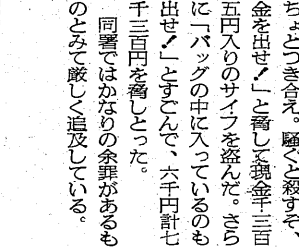 ちよとつき合え。騒ぐと殺すぞ、
金を出せ！」と脅して現金千三百
五円入りのサイフを盗んだ。さら
に「バッグの中に入っているのも
出せ！」とすごんで、六千円計七
千三百円を脅しとった。
同署ではかなりの余罪があるも
のとみて厳しく追及している。